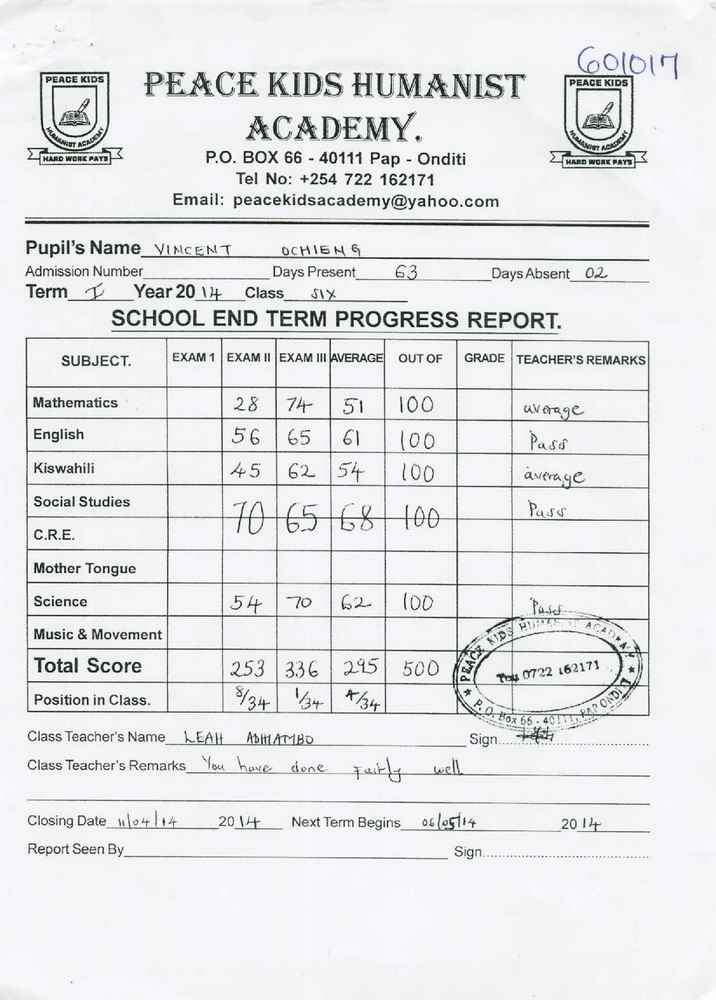 601017
PEACE KIDS
HUMANIST ACADEMY
HARD WORK PAYS
PEACE KIDS HUMANIST
ACADEMY.
PEACE KIDS
HUMANIST ACADEMY
HARD WORK PAYS
P.O. BOX 66 - 40111 Pap - Onditi
Tel No: +254 722 162171
Email: peacekidsacademy@yahoo.com
Pupil's Name VINCENT OCHIENG
Admission Number Days Present 63 Days Absent 02
Term I Year 2014 Class SIX
SCHOOL END TERM PROGRESS REPORT.
SUBJECT. EXAM 1 EXAM II EXAM III AVERAGE OUT OF GRADE TEACHER'S REMARKS
Mathematics 28 74 51 100 average
English 56 65 61 100 Pass
Kiswahili 45 62 54 100 average
Social Studies 70 65 68 100 Pass
C.R.E.
Mother Tongue
Science 54 70 62 100 Pass
Music & Movement
Total Score 253 336 295 500
Position in Class. 8/34 1/34 4/34
PEACE KIDS HUMANIST ACADEMY
0722 162171
P.O. Box 66 - 40111, PAP ONDITI
Class Teacher's Name LEAH Sign
Class Teacher's Remarks You have done fairly well
Closing Date 11/04/14 2014 Next Term Begins 06/05/14 2014
Report Seen By Sign